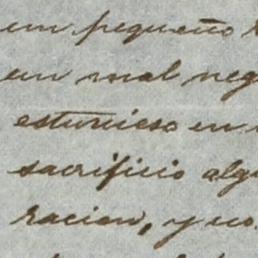 un pequeño
un mal neg
estuviese en
sacrificio alg
racion, y no